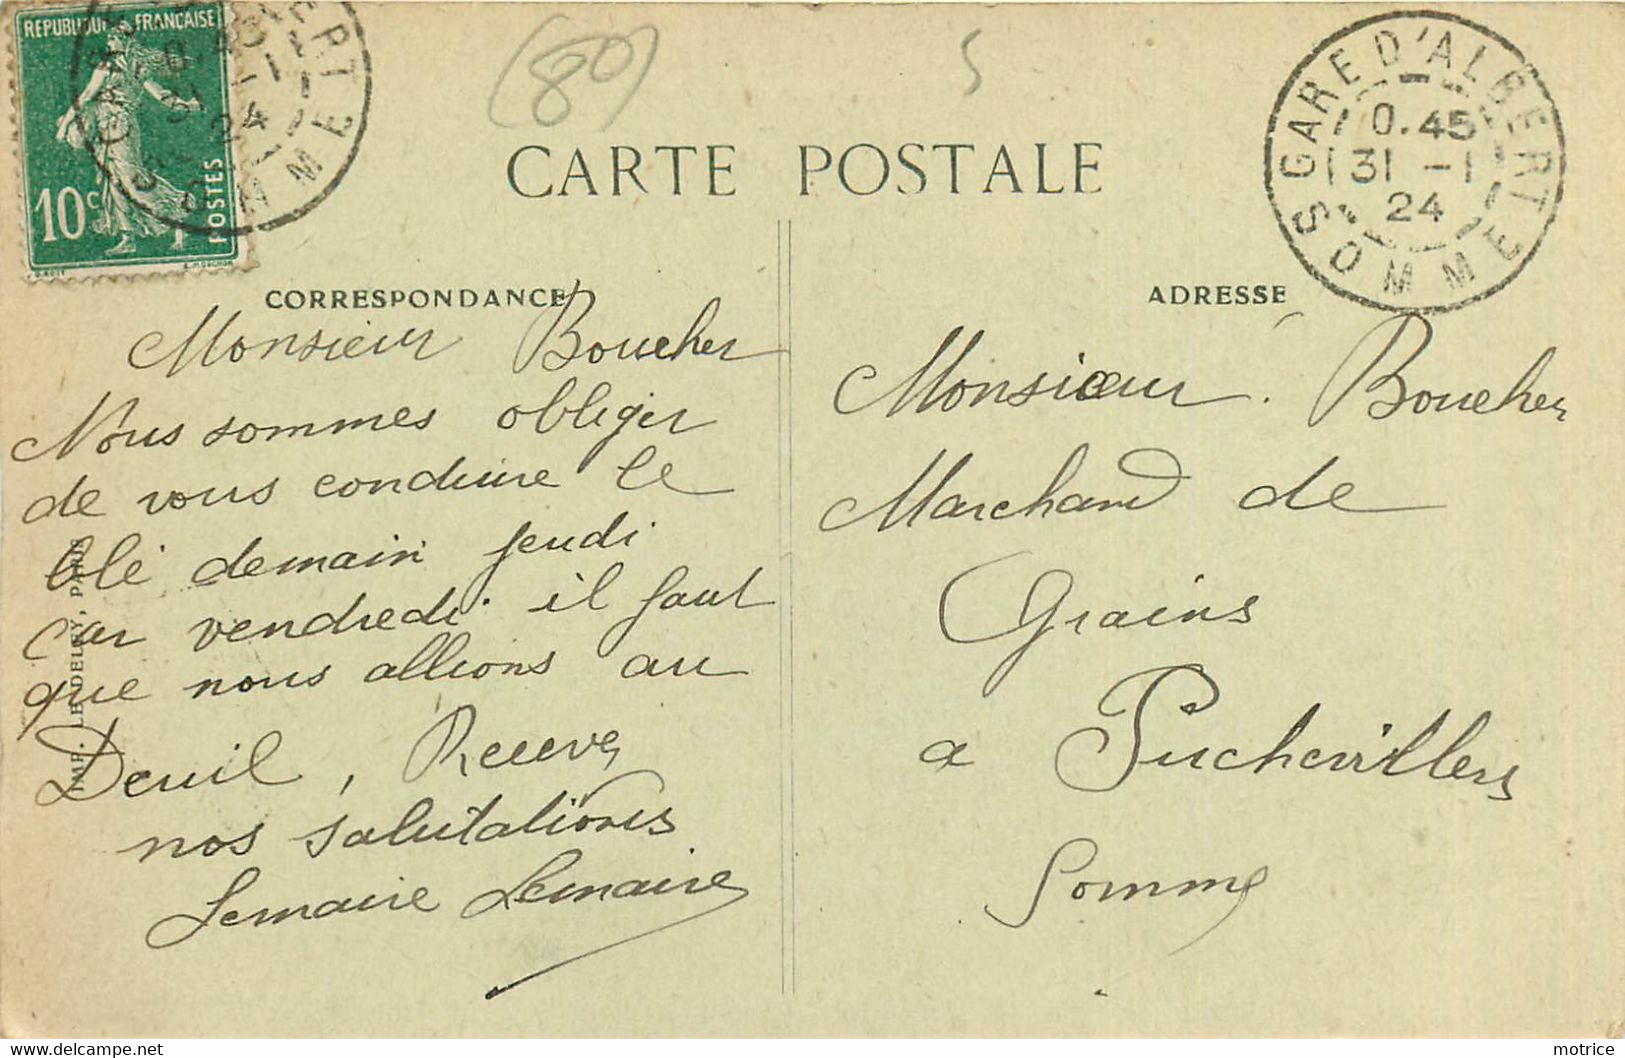 REPUBLIQUE FRANÇAISE
10c
POSTES
(80)
5
GARE D'ALBERT
0.45
31 -1
24
SOMME
CARTE POSTALE
CORRESPONDANCE
ADRESSE
Monsieur Boucher
Nous sommes obliger
de vous conduire le
blé demain jeudi
car vendredi il faut
que nous allions au
Deuil, Recevez
nos salutations
Lemaire Lemaire
IMP. LE DELEY, PARIS
Monsieur Boucher
Marchand de
Grains
a Puchevillers
Somme
motrice